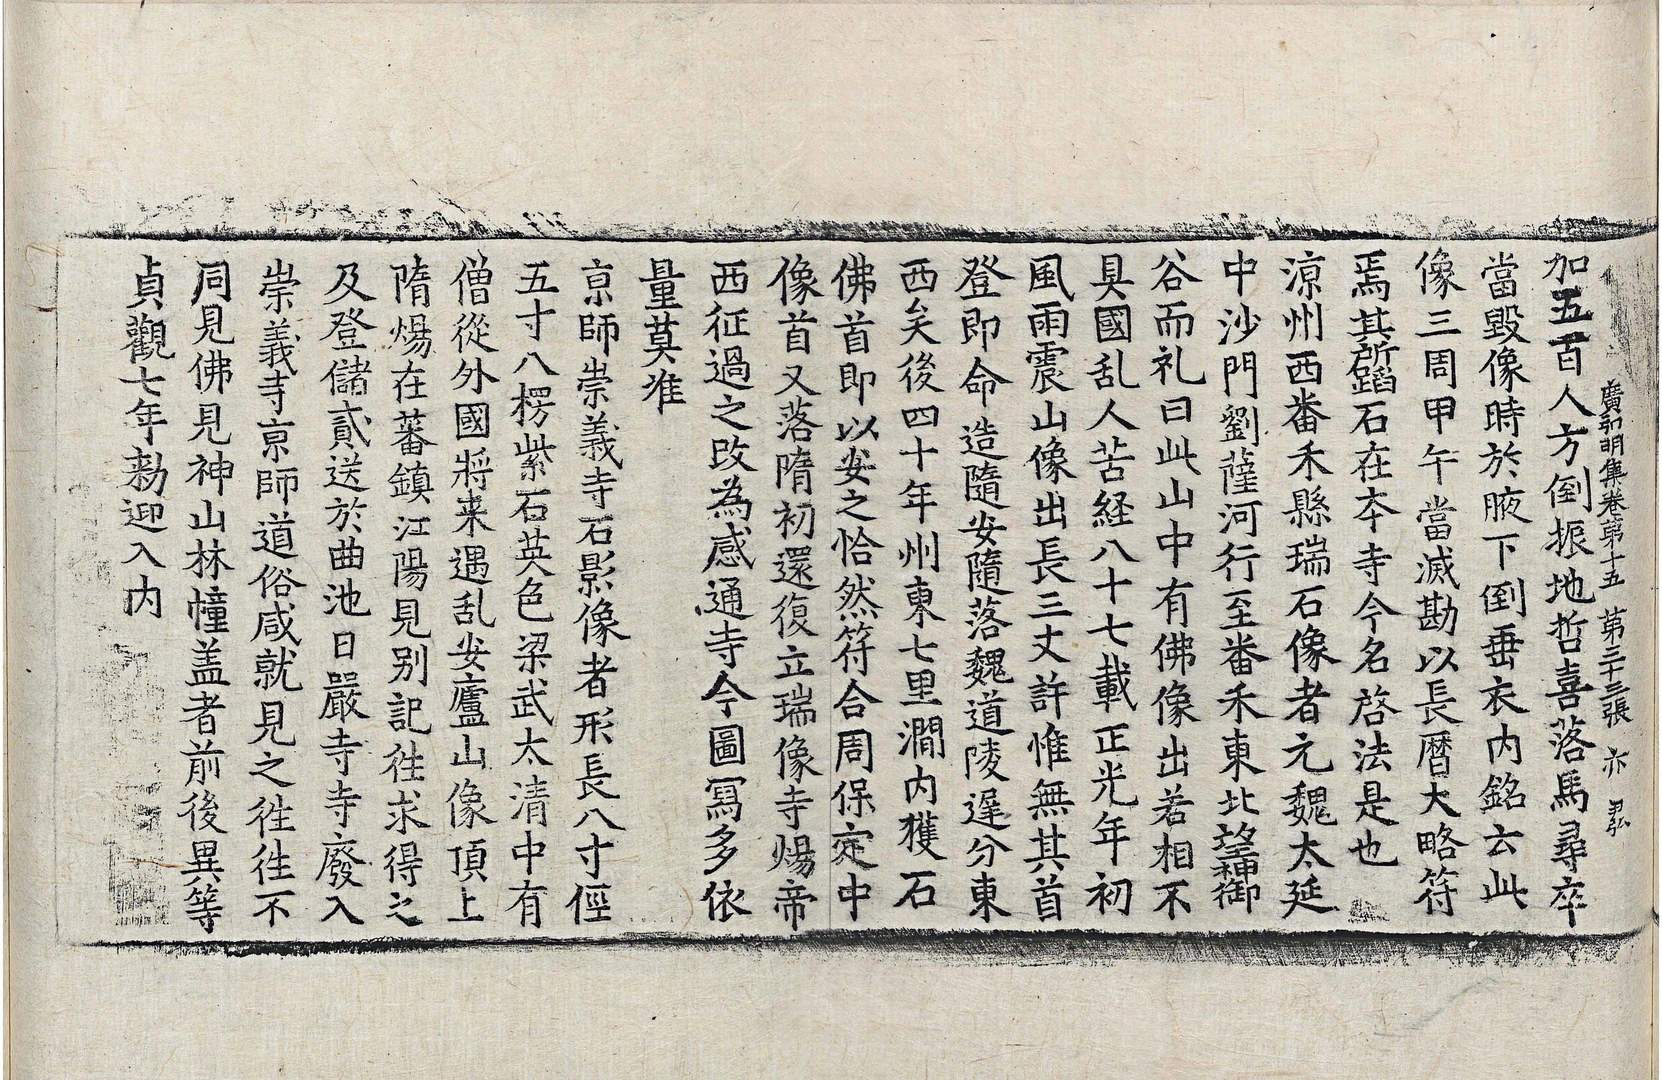 廣弘明集卷第十五 第三十三張 亦 弘
加五百人方倒振地哲喜落馬尋卒
當毀像時於腋下倒垂衣内銘云此
像三周甲午當滅勘以長曆大略符
焉其所蹈石在本寺今名啓法是也
涼州西番禾縣瑞石像者元魏太延
中沙門劉薩河行至番禾東北望御
谷而礼曰此山中有佛像出若相不
具國乱人苦経八十七載正光年初
風雨震山像出長三丈許惟無其首
登即命造隨安隨落魏道陵遲分東
西矣後四十年州東七里澗内獲石
佛首即以安之恰然符合周保定中
像首又落隋初還復立瑞像寺煬帝
西征過之改為感通寺今圖寫多依
量莫准
京師崇義寺石影像者形長八寸徑
五寸八楞紫石英色梁武太清中有
僧從外國將来遇乱安廬山像頂上
隋煬在蕃鎮江陽見别記往求得之
及登儲貳送於曲池日嚴寺寺廢入
崇義寺京師道俗咸就見之往往不
同見佛見神山林幢盖者前後異等
貞觀七年勑迎入内